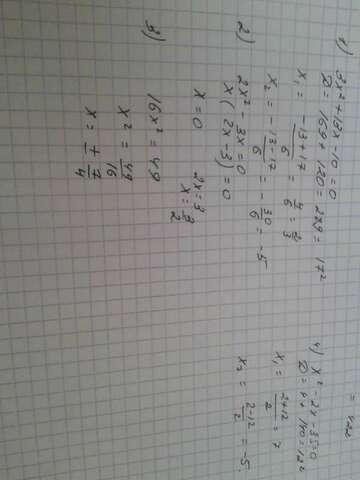 1)
3x² + 13x - 10 = 0
D = 169 + 120 = 289 = 17²
x₁ = (-13 + 17)/6 = 4/6 = 2/3
x₂ = (-13 - 17)/6 = -30/6 = -5
2)
2x² - 3x = 0
x(2x - 3) = 0
x = 0 2x = 3
x = 3/2
3)
16x² = 49
x² = 49/16
x = ± 7/4
4) x² - 2x - 35 = 0
D = 4 + 140 = 12²
x₁ = (2 + 12)/2 = 7
x₂ = (2 - 12)/2 = -5.